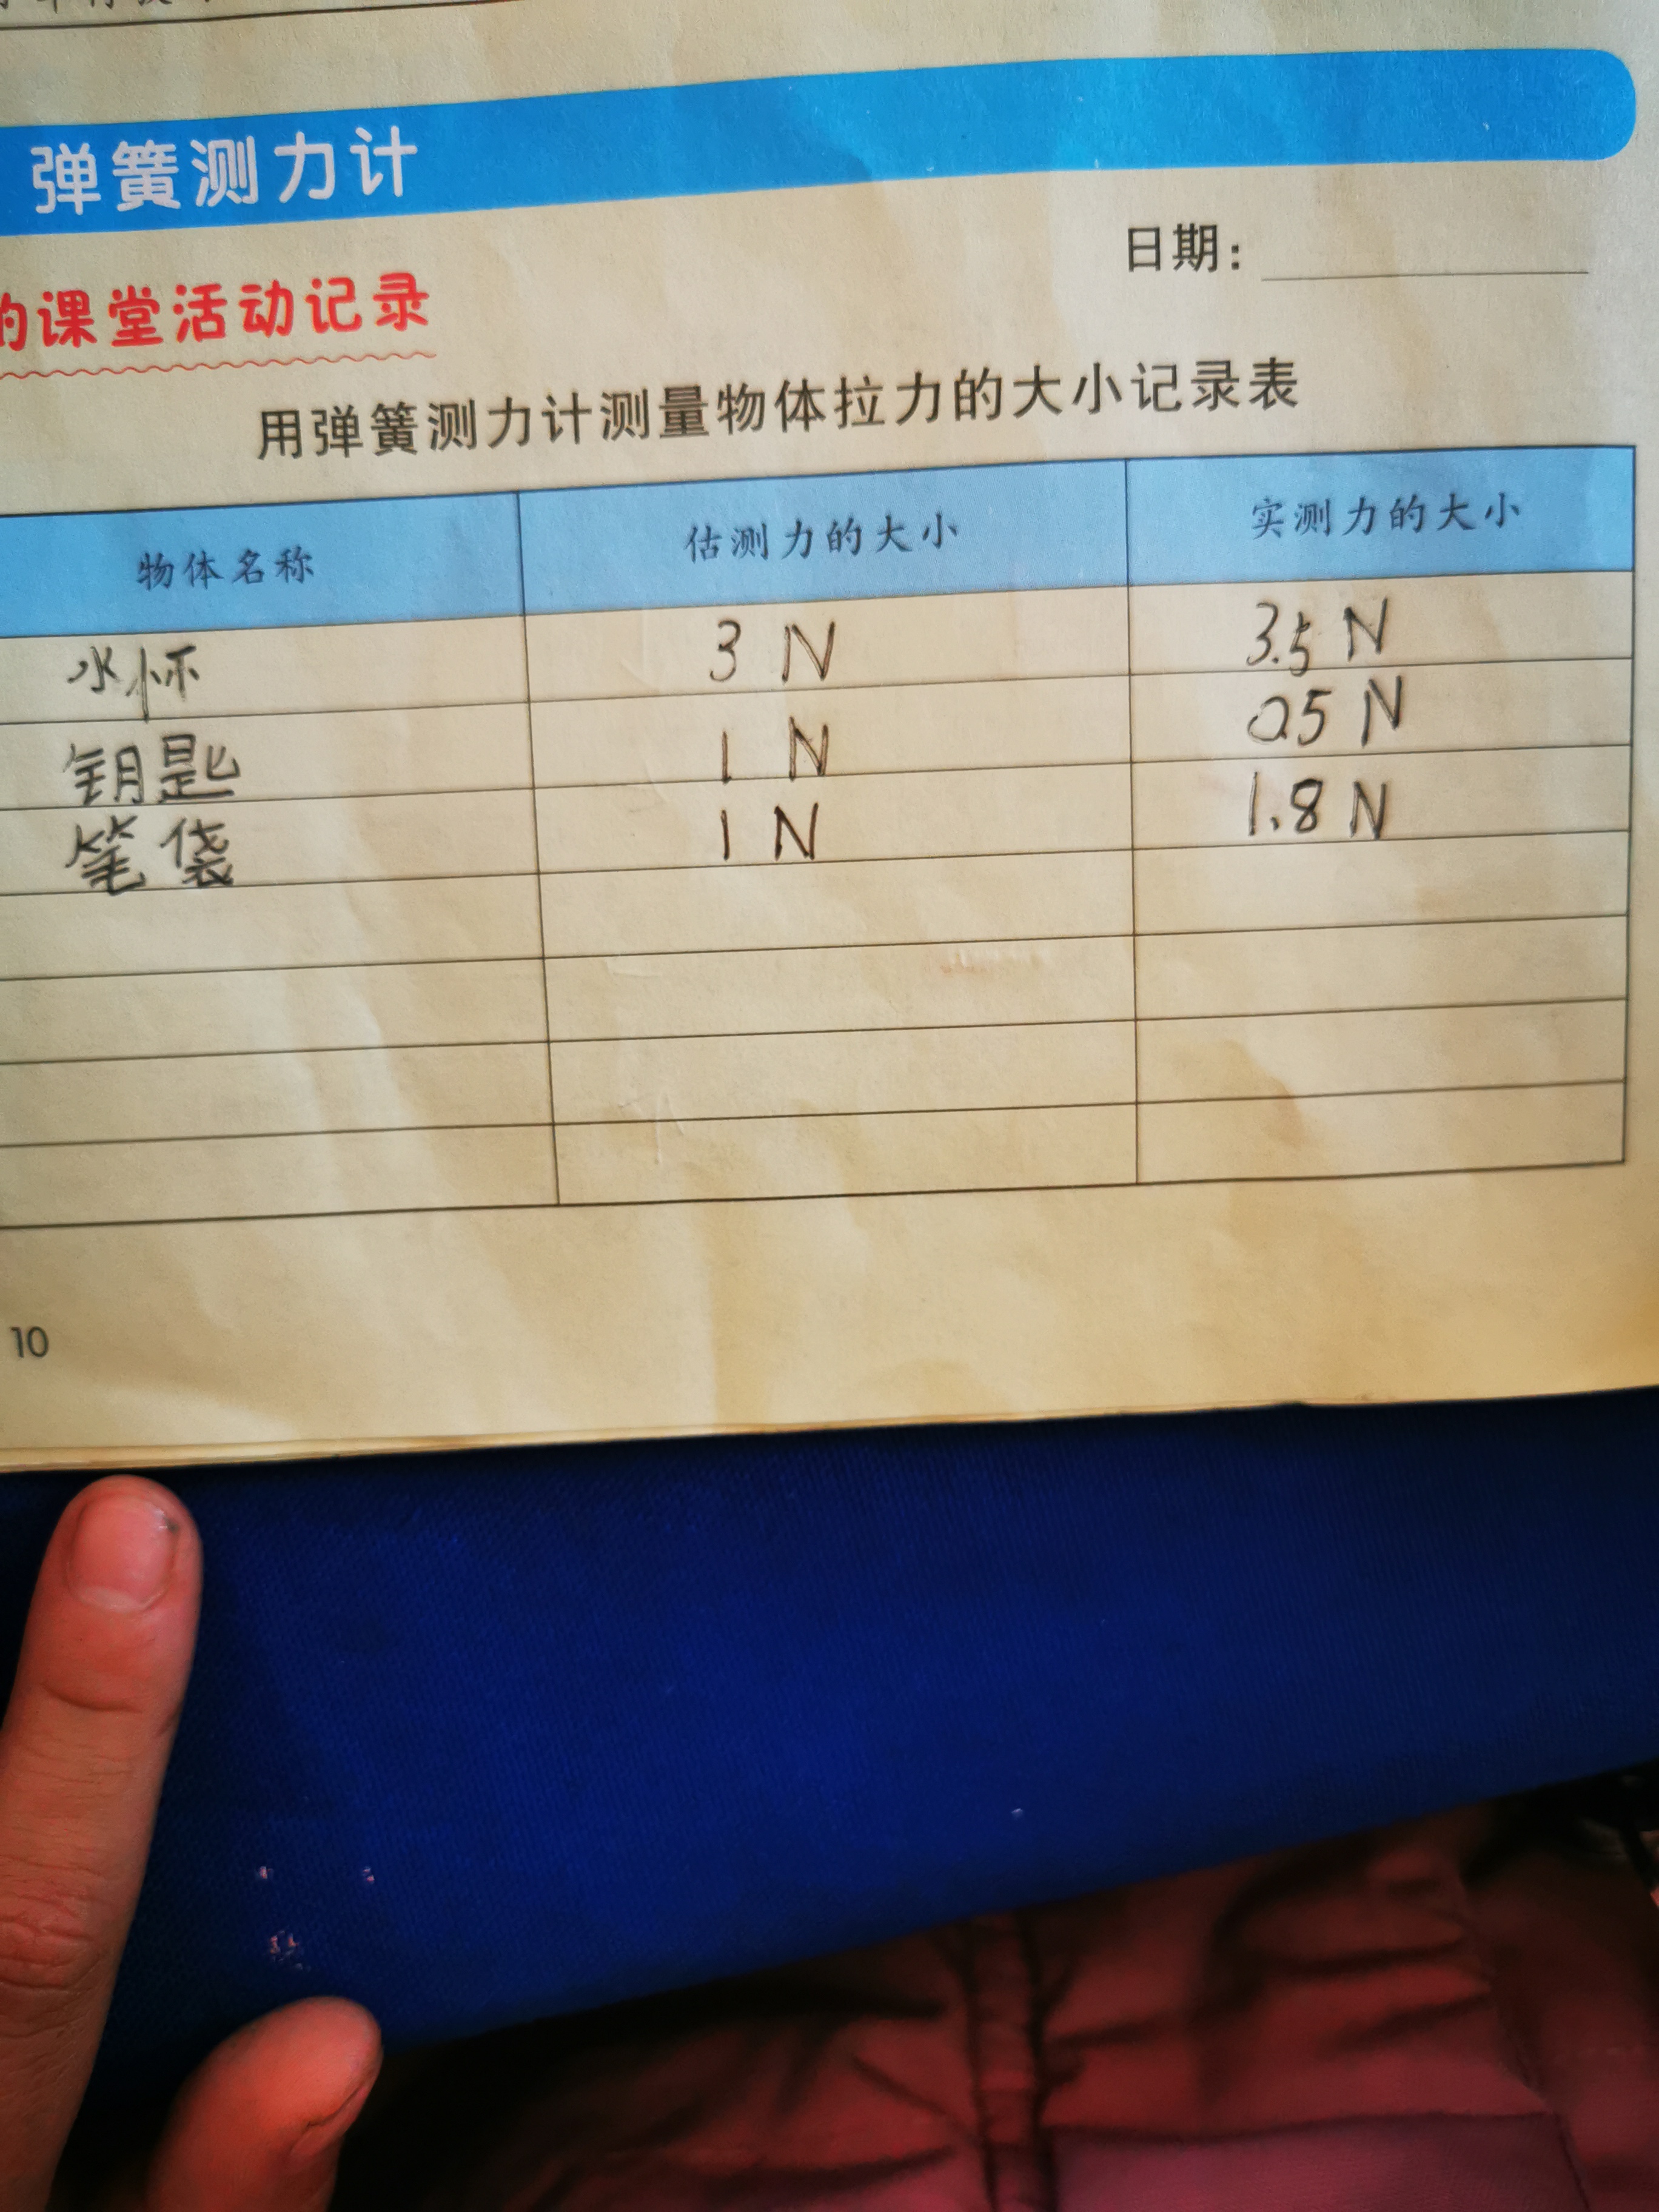 弹簧测力计
日期：
的课堂活动记录
用弹簧测力计测量物体拉力的大小记录表
物体名称 估测力的大小 实测力的大小
水杯 3 N 3.5 N
钥匙 1 N 0.5 N
笔袋 1 N 1.8 N
10